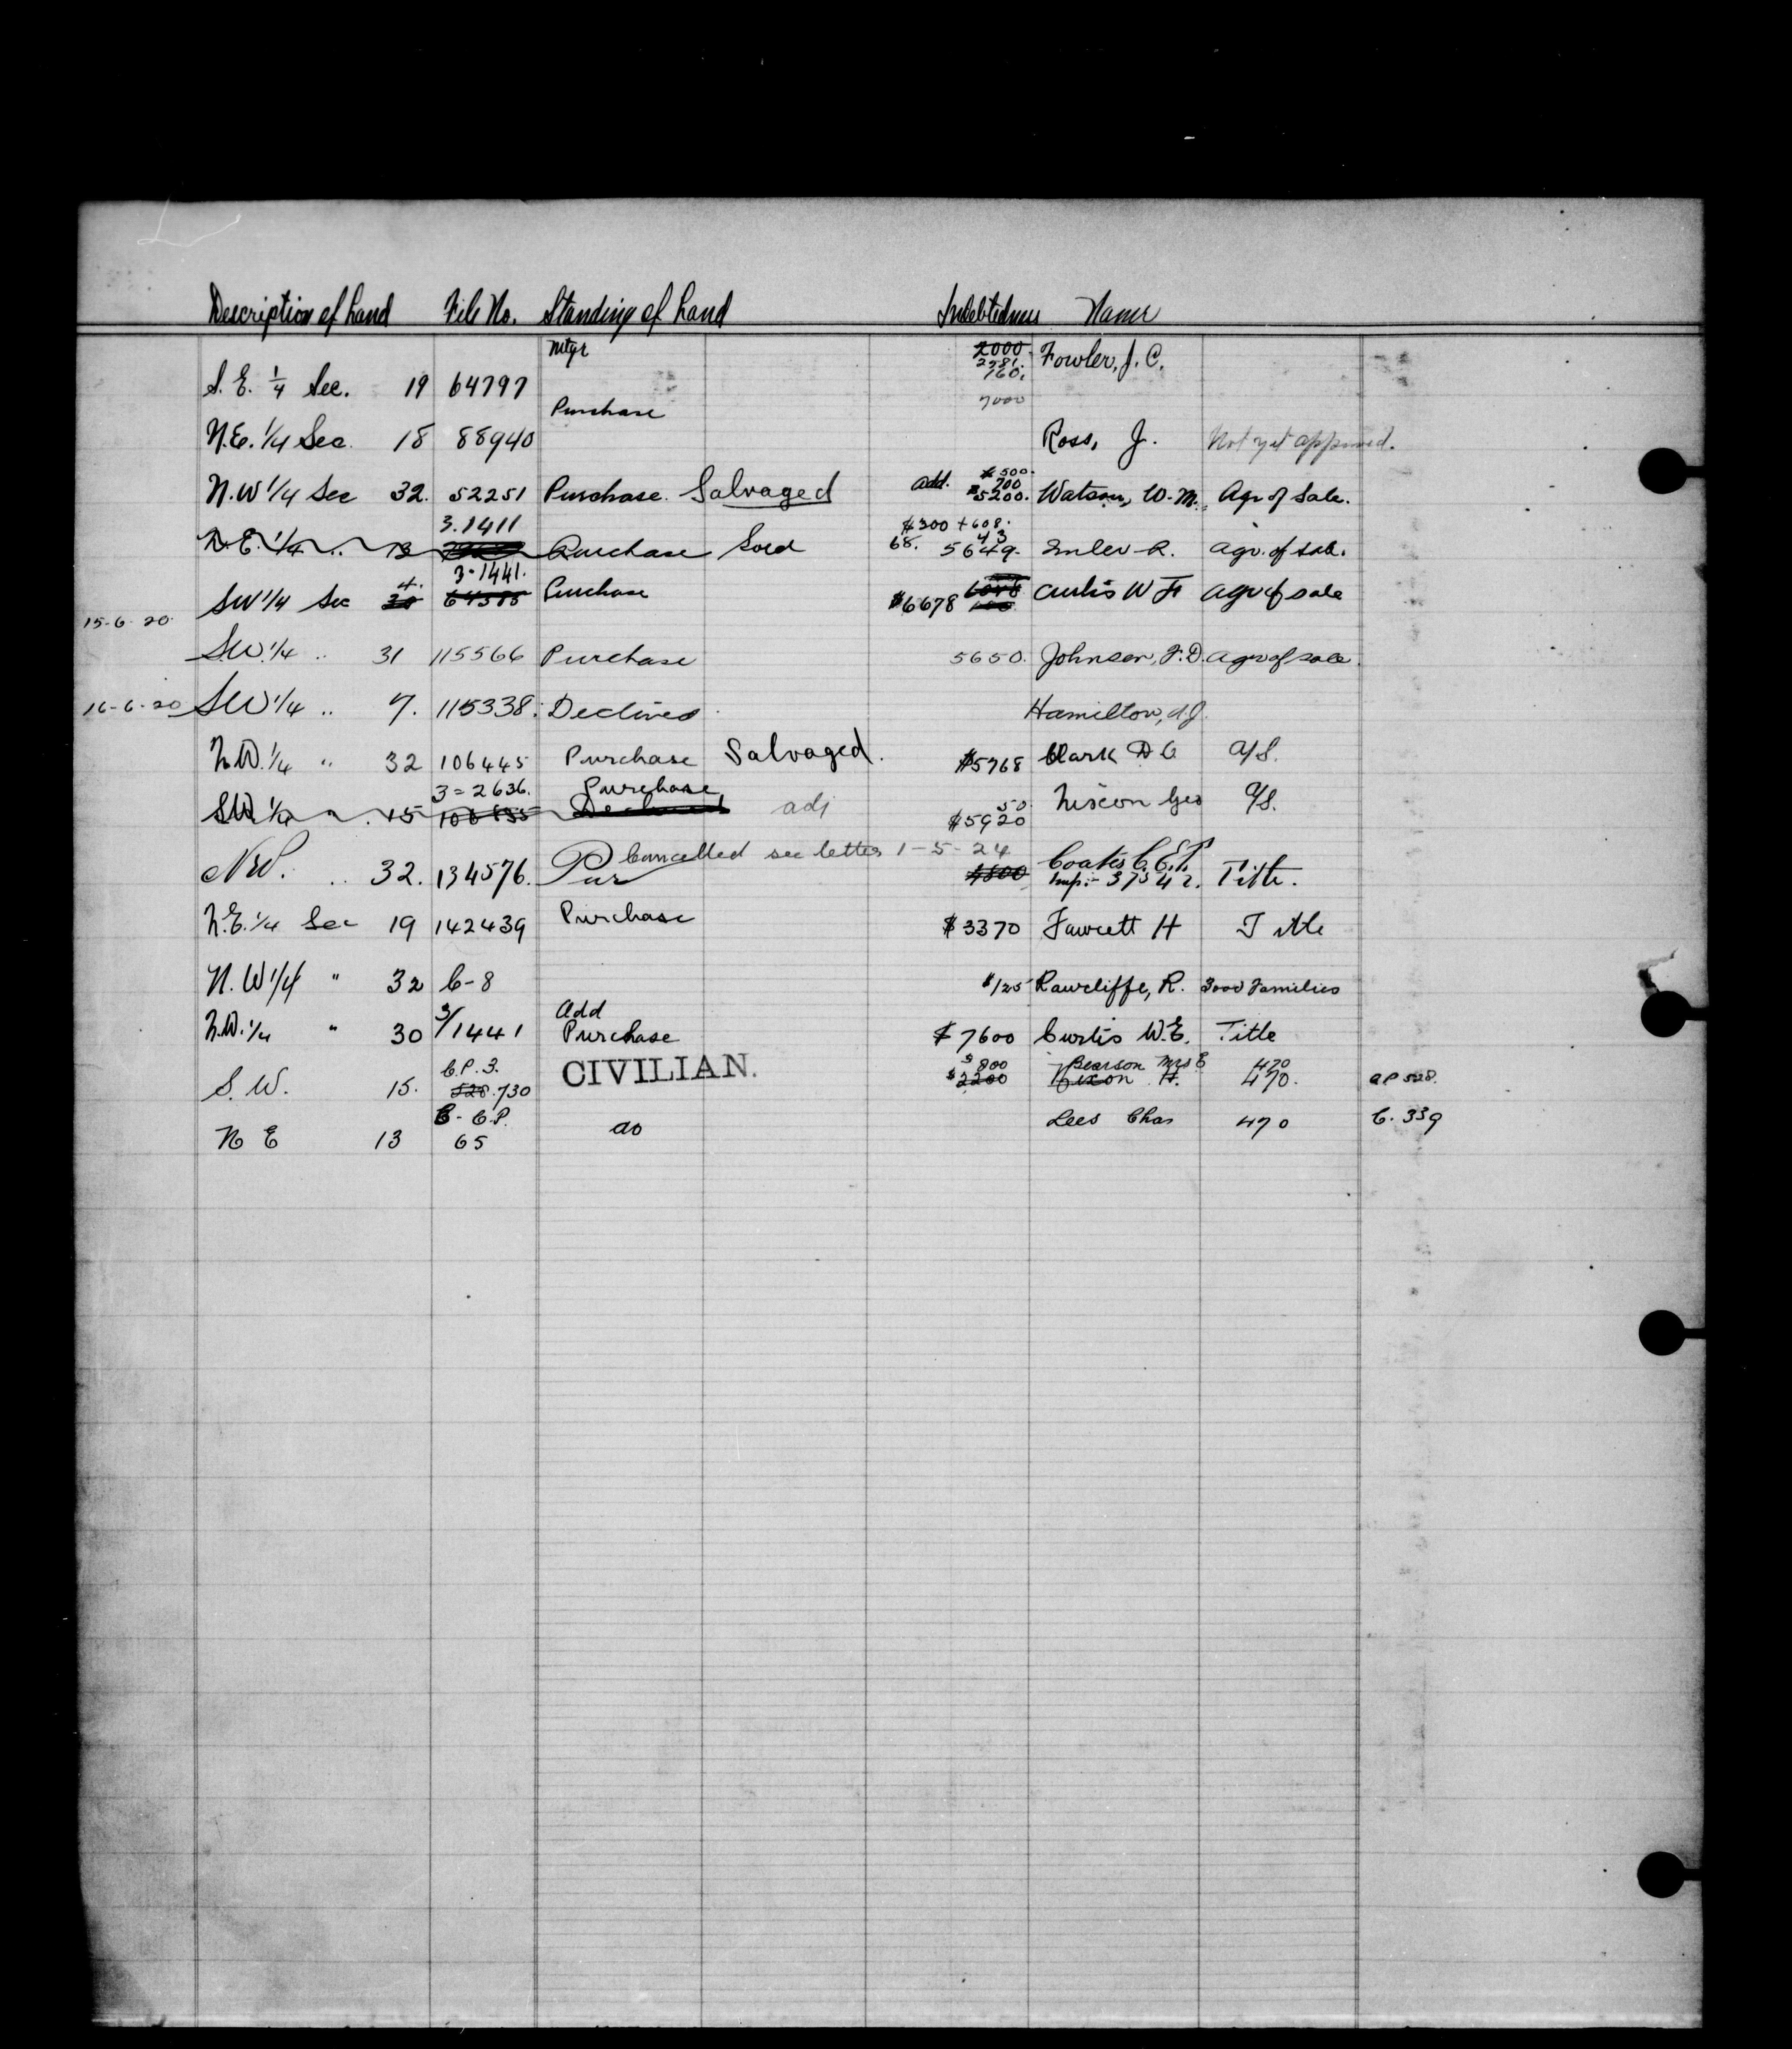 Description of Land File No. Standing of Land Indebtedness Name
S.E. 1/4 Sec. 19 64797 Mtge 2000. 2281. 760. Fowler, J. C.
Purchase 7000
N.E. 1/4 Sec. 18 88940 Ross, J. Not yet approved.
N.W 1/4 Sec 32. 52251 Purchase. Salvaged add. $500. 700 $5200. Watson, W. M. Agr of Sale.
3.1411 $300 + 608.
N.E. 1/4 .. 13 Purchase Sold 68. 43 5649. R. agr. of sale.
3-1441.
SW 1/4 Sec 4. 30 64588 Purchase $6678 Curtis W agr of sale
15-6-20
S.W. 1/4 .. 31 115566 Purchase 5650. Johnson, F. D. agr of sale.
16-6-20 SW 1/4 .. 7. 115338. Declined Hamilton, A.J.
N.W. 1/4 " 32 106445 Purchase Salvaged. $5768 Clark D C A/S.
3=2636. Purchase
SW. 1/4 " 15 Declined adj 50. $5920 Nixon Geo A/S.
Cancelled see letter 1-5-24
NW. .. 32. 134576. Pur 4800 Coates C.E.P. Imp:- 37542. Title.
N.E. 1/4 Sec 19 142439 Purchase $3370 Fawcett H Title
N. W 1/4 " 32 C-8 $125 Rawcliffe, R. 3000 Families
N.W. 1/4 " 30 3/1441 Add Purchase $7600 Curtis W.E. Title
C.P. 3. CIVILIAN. $800 Pearson Mrs E 470
S. W. 15. 528. 730 $2200 Nixon H. 470. CP 528.
C- C.P.
N E 13 65 do Lees Chas 470 C. 339